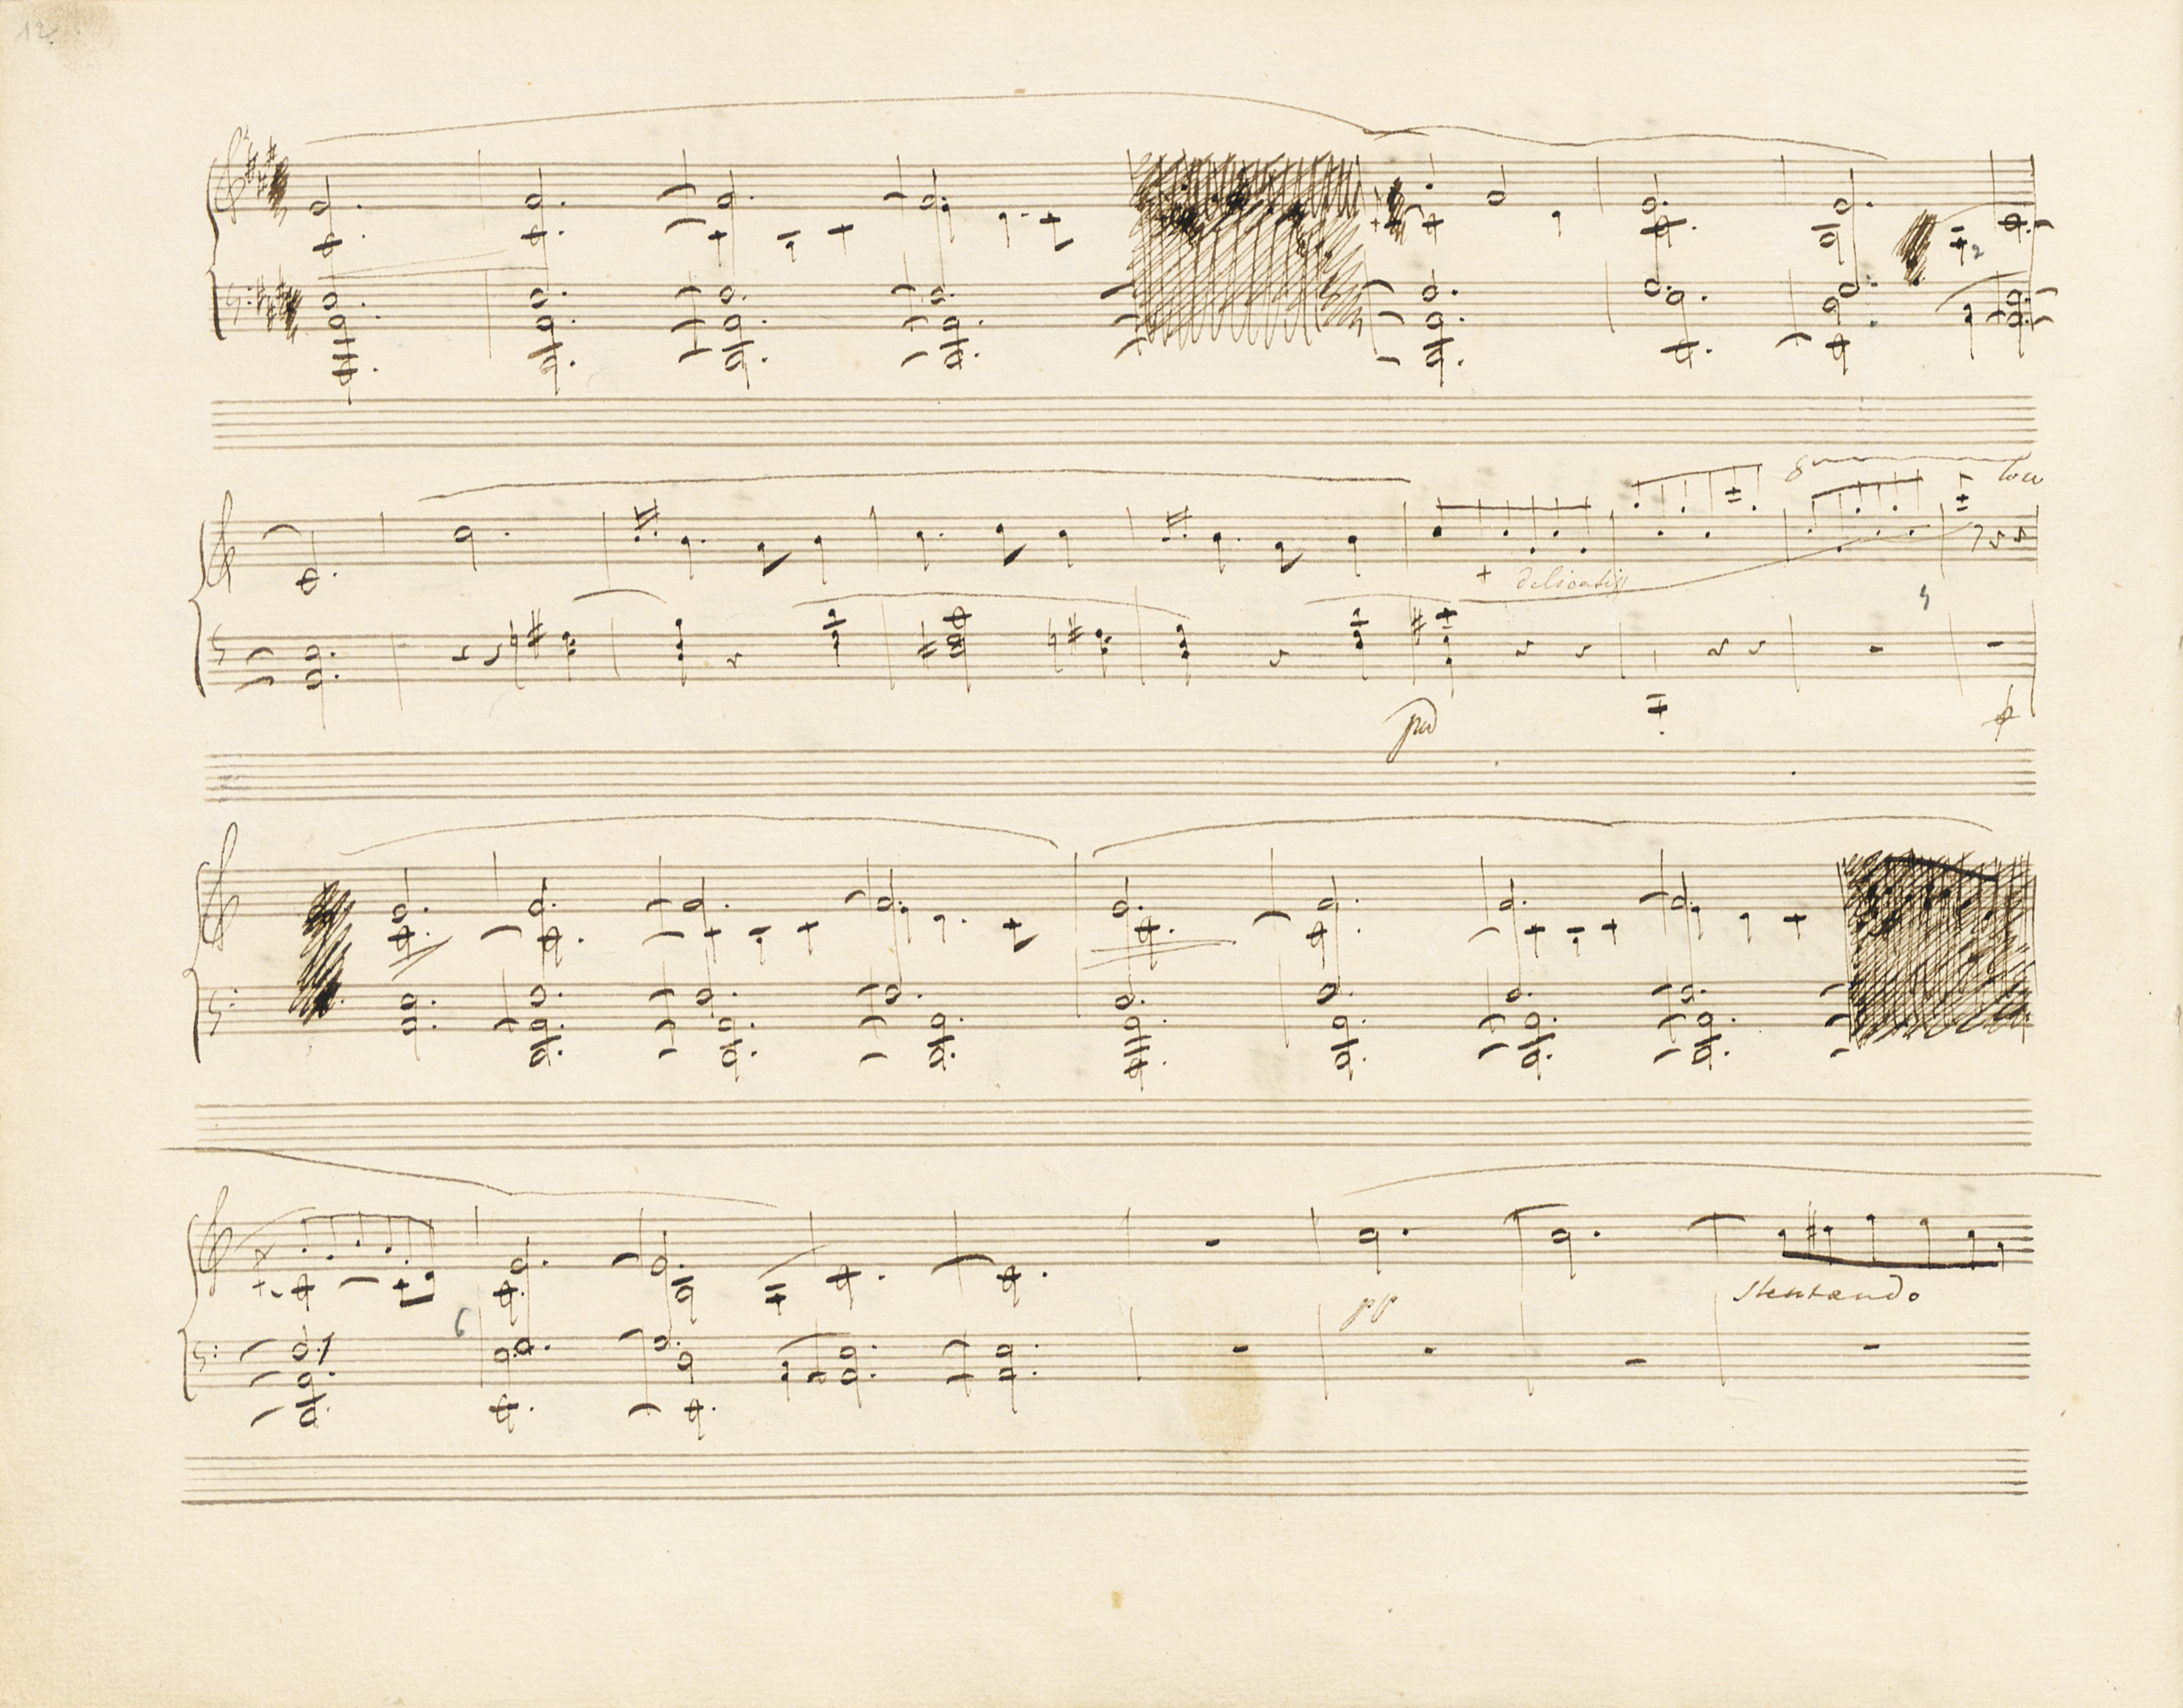 12.
8 loco
delicatiss
2
pp
6
stentando